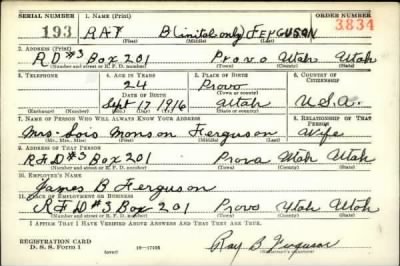 SERIAL NUMBER 1. NAME (Print) ORDER NUMBER
193 RAY B(initol only) FERGUSON 3834
(First) (Middle) (Last)
2. ADDRESS (Print)
R D #3 Box 201 Provo Utah Utah
(Number and street or R. F. D. number) (Town) (County) (State)
3. TELEPHONE 4. AGE IN YEARS 5. PLACE OF BIRTH 6. COUNTRY OF CITIZENSHIP
24 Provo
DATE OF BIRTH (Town or county)
Sept 17 1916 Utah U.S.A.
(Exchange) (Number) (Mo.) (Day) (Yr.) (State or country)
7. NAME OF PERSON WHO WILL ALWAYS KNOW YOUR ADDRESS 8. RELATIONSHIP OF THAT PERSON
Mrs- Lois Monson Ferguson Wife
(Mr., Mrs., Miss) (First) (Middle) (Last)
9. ADDRESS OF THAT PERSON
R F D #3 Box 201 Prova Utah Utah
(Number and street or R. F. D. number) (Town) (County) (State)
10. EMPLOYER'S NAME
James B Ferguson
11. PLACE OF EMPLOYMENT OR BUSINESS
R F D #3 Box 201 Provo Utah Utah
(Number and street or R. F. D. number) (Town) (County) (State)
I AFFIRM THAT I HAVE VERIFIED ABOVE ANSWERS AND THAT THEY ARE TRUE.
REGISTRATION CARD
D. S. S. Form 1 16—17105 Ray B Ferguson
(Registrant's signature)